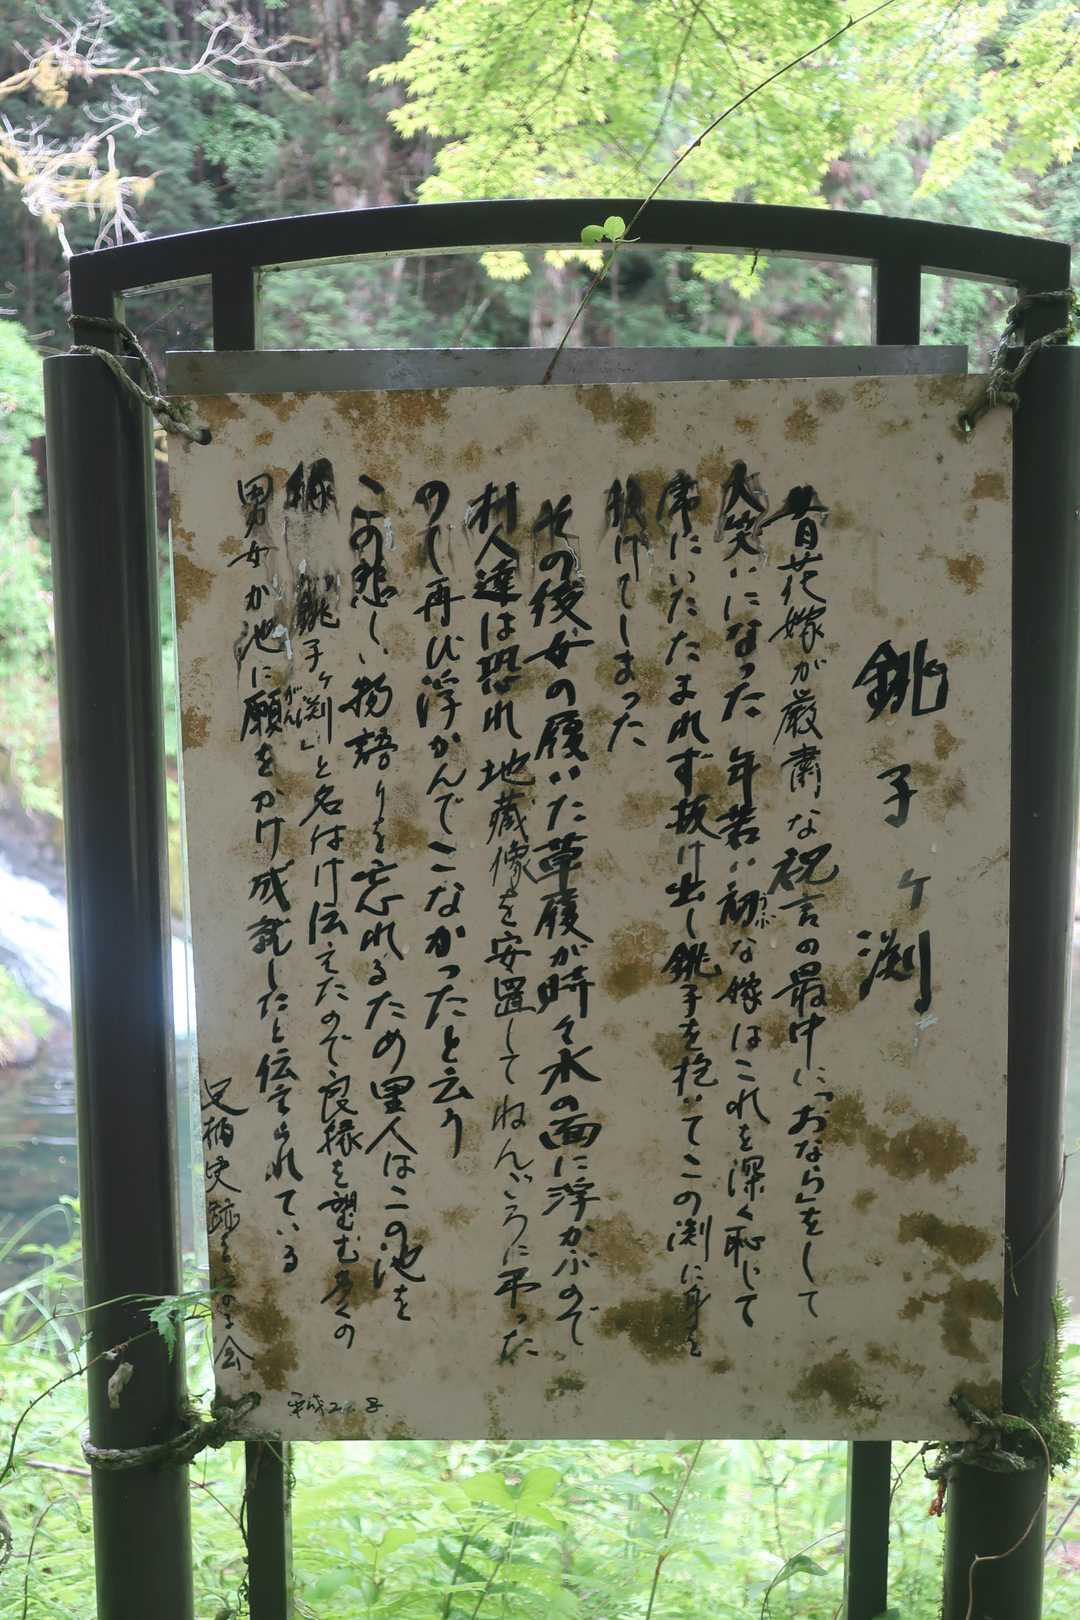 銚子ヶ渕
昔花嫁が厳粛な祝言の最中に「おなら」をして
大笑いになった 年若い初な嫁はこれを深く恥じて
席にいたたまれず抜け出し銚子を抱いてこの渕に身を
投げてしまった
その後女の履いた草履が時々水の面に浮かぶので
村人達は恐れ地蔵像を安置してねんごろに弔った
のし再び浮かんでこなかったと云う
この悲しい物語りを忘れるため里人はこの池を
縁 銚子ヶ渕」と名付け伝えたので良縁を望む多くの
男女が池に願をかけ成就したと伝えられている
足柄史跡
会
平成2